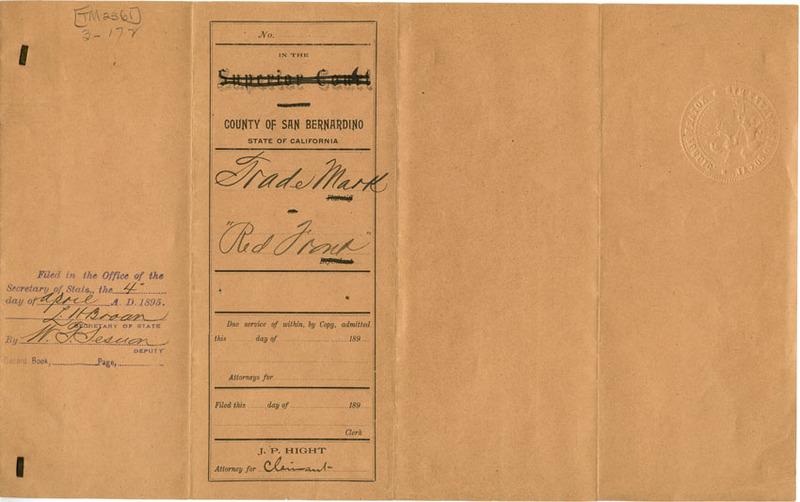 [TM2361]
3-17
No.
IN THE
Superior Court
COUNTY OF SAN BERNARDINO
STATE OF CALIFORNIA
Trade Mark
Plaintiff
"Red Front"
Defendant
Due service of within, by Copy, admitted
this day of 189
Attorneys for
Filed this day of 189
Clerk
J. P. HIGHT
Attorney for Claimant
Filed in the Office of the
Secretary of State, the 4
day of April A. D. 1895.
L. H. Brown
SECRETARY OF STATE
By W. T. Sesnon
DEPUTY
Record Book, Page,